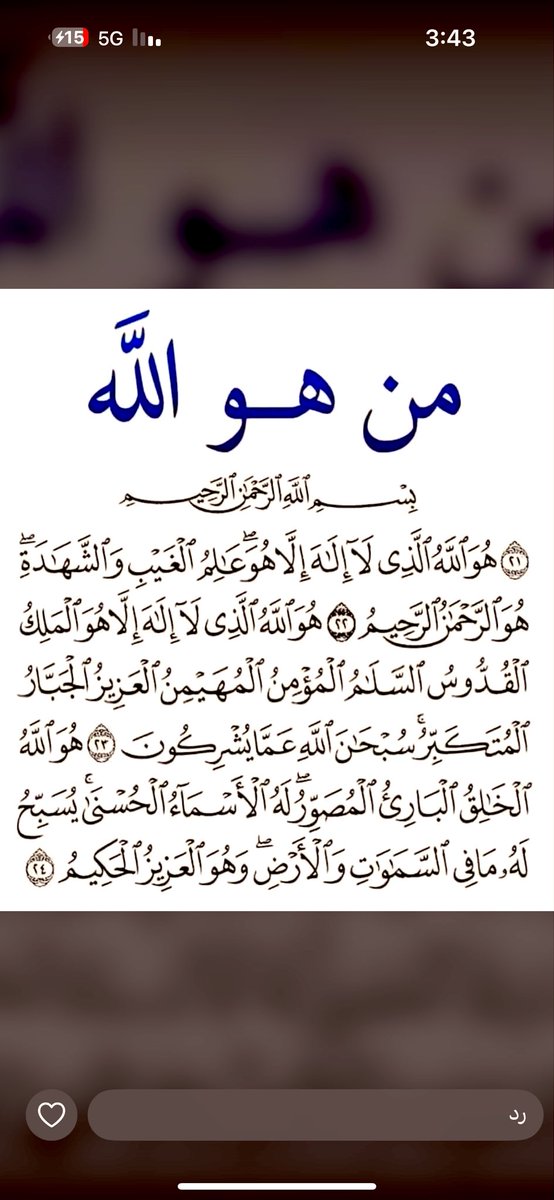 3:43
5G
15
من هو الله
بِسْمِ ٱللَّهِ ٱلرَّحْمَٰنِ ٱلرَّحِيمِ
٢١ هُوَ ٱللَّهُ ٱلَّذِى لَآ إِلَٰهَ إِلَّا هُوَ ۖ عَٰلِمُ ٱلْغَيْبِ وَٱلشَّهَٰدَةِ ۖ
هُوَ ٱلرَّحْمَٰنُ ٱلرَّحِيمُ ٢٢ هُوَ ٱللَّهُ ٱلَّذِى لَآ إِلَٰهَ إِلَّا هُوَ ٱلْمَلِكُ
ٱلْقُدُّوسُ ٱلسَّلَٰمُ ٱلْمُؤْمِنُ ٱلْمُهَيْمِنُ ٱلْعَزِيزُ ٱلْجَبَّارُ
ٱلْمُتَكَبِّرُ ۚ سُبْحَٰنَ ٱللَّهِ عَمَّا يُشْرِكُونَ ٢٣ هُوَ ٱللَّهُ
ٱلْخَٰلِقُ ٱلْبَارِئُ ٱلْمُصَوِّرُ ۖ لَهُ ٱلْأَسْمَآءُ ٱلْحُسْنَىٰ ۚ يُسَبِّحُ
لَهُۥ مَا فِى ٱلسَّمَٰوَٰتِ وَٱلْأَرْضِ ۖ وَهُوَ ٱلْعَزِيزُ ٱلْحَكِيمُ ٢٤
رد